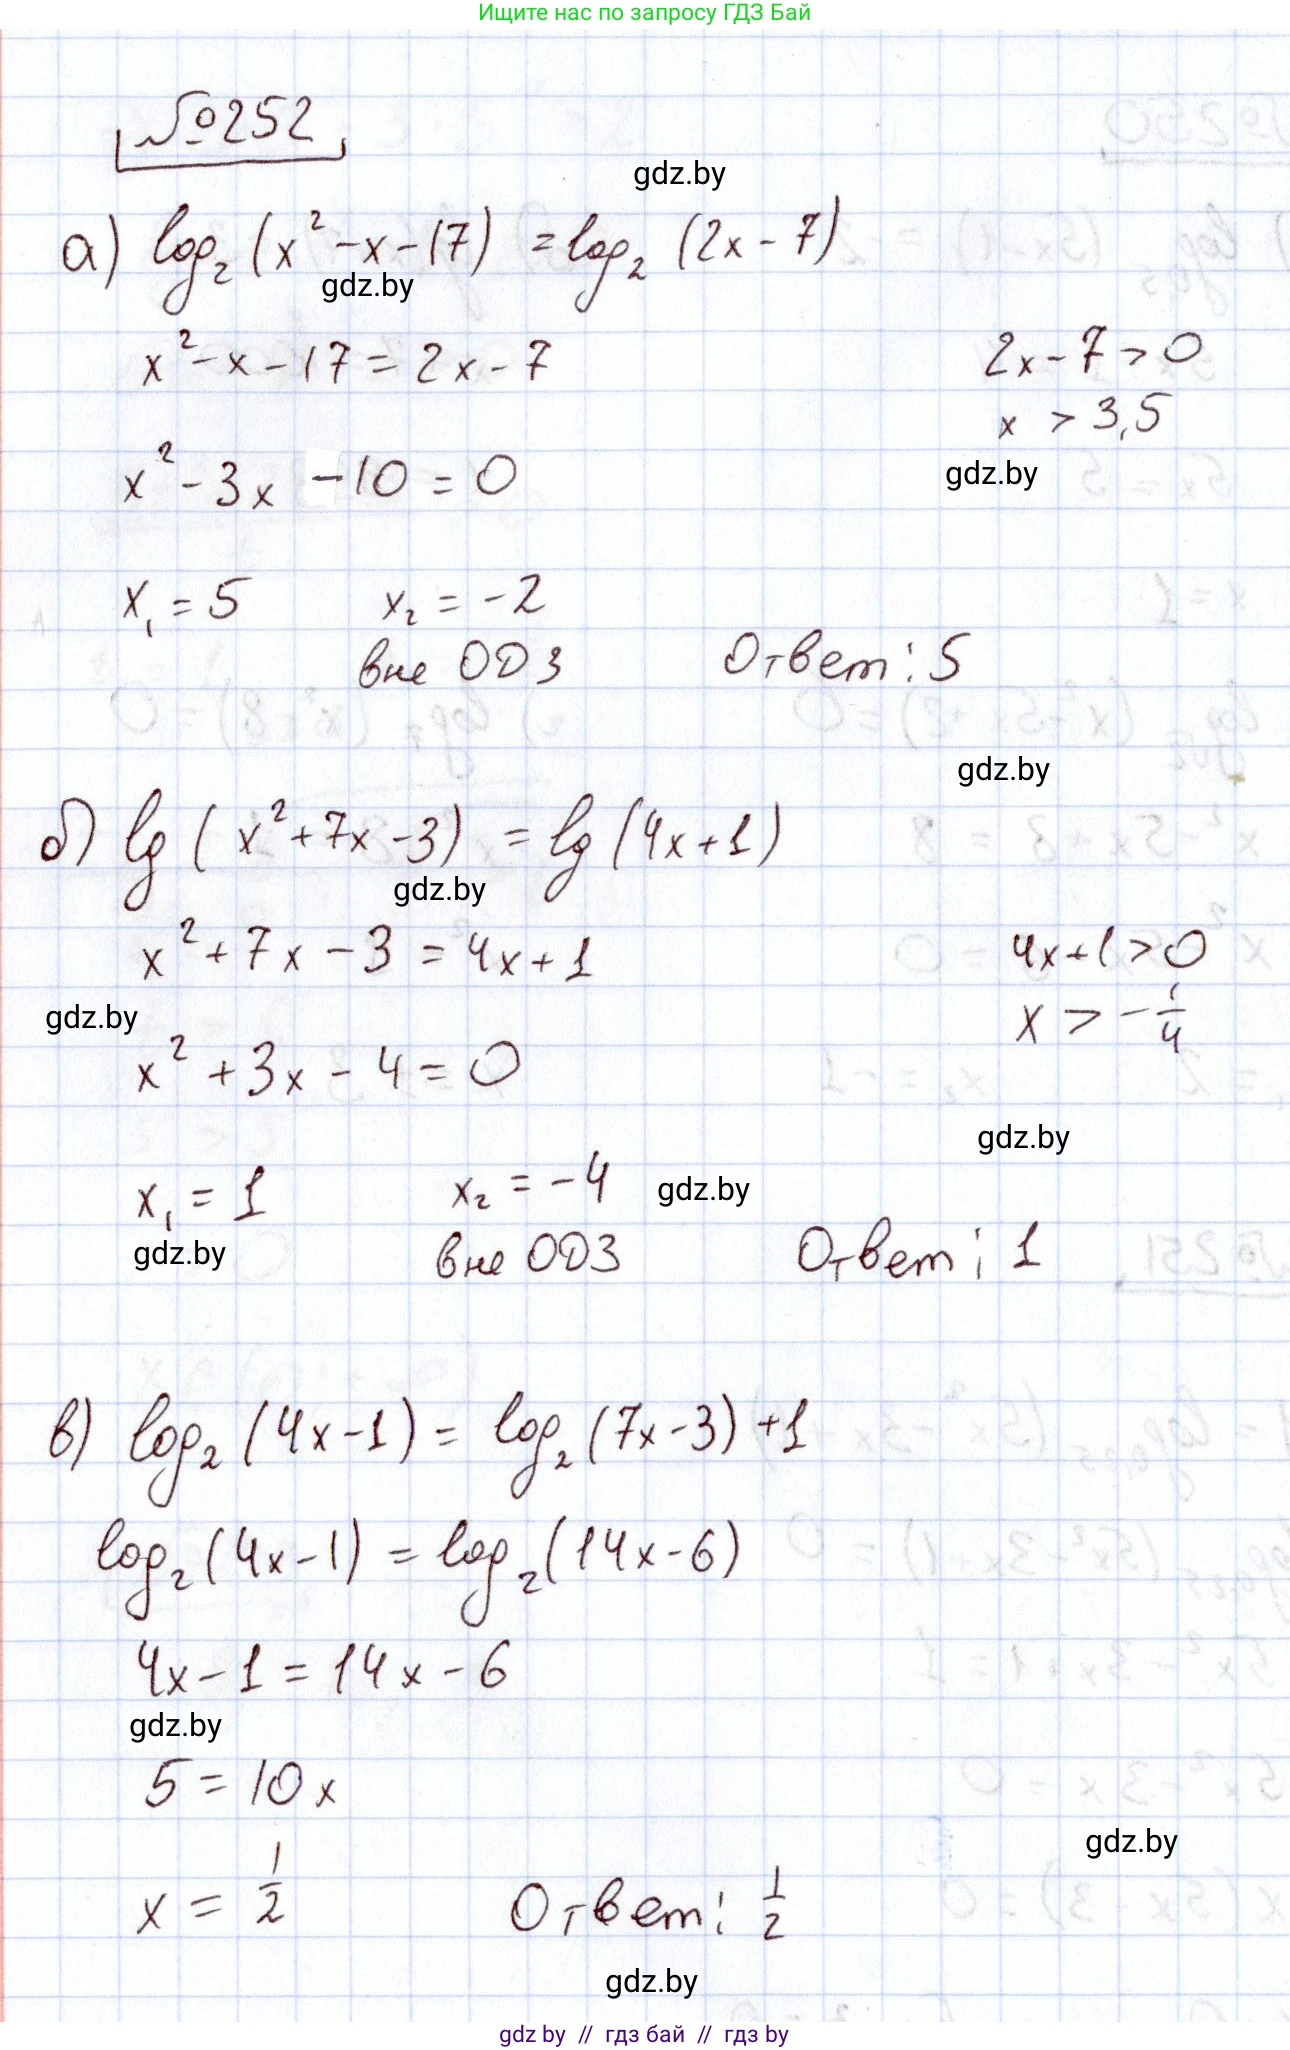 Ищите нас по запросу ГДЗ Бай
№252
gdz.by
а) log₂ (x² - x - 17) = log₂ (2x - 7)
gdz.by
x² - x - 17 = 2x - 7
2x - 7 > 0
x > 3,5
x² - 3x - 10 = 0
gdz.by
x₁ = 5 x₂ = -2
вне ОДЗ
Ответ: 5
gdz.by
б) lg (x² + 7x - 3) = lg (4x + 1)
gdz.by
x² + 7x - 3 = 4x + 1
4x + 1 > 0
gdz.by
x > -1/4
x² + 3x - 4 = 0
gdz.by
x₁ = 1 x₂ = -4
gdz.by
gdz.by
вне ОДЗ
Ответ: 1
в) log₂ (4x - 1) = log₂ (7x - 3) + 1
log₂ (4x - 1) = log₂ (14x - 6)
4x - 1 = 14x - 6
gdz.by
5 = 10x
gdz.by
x = 1/2
Ответ: 1/2
gdz.by
gdz by // гдз бай // гдз by